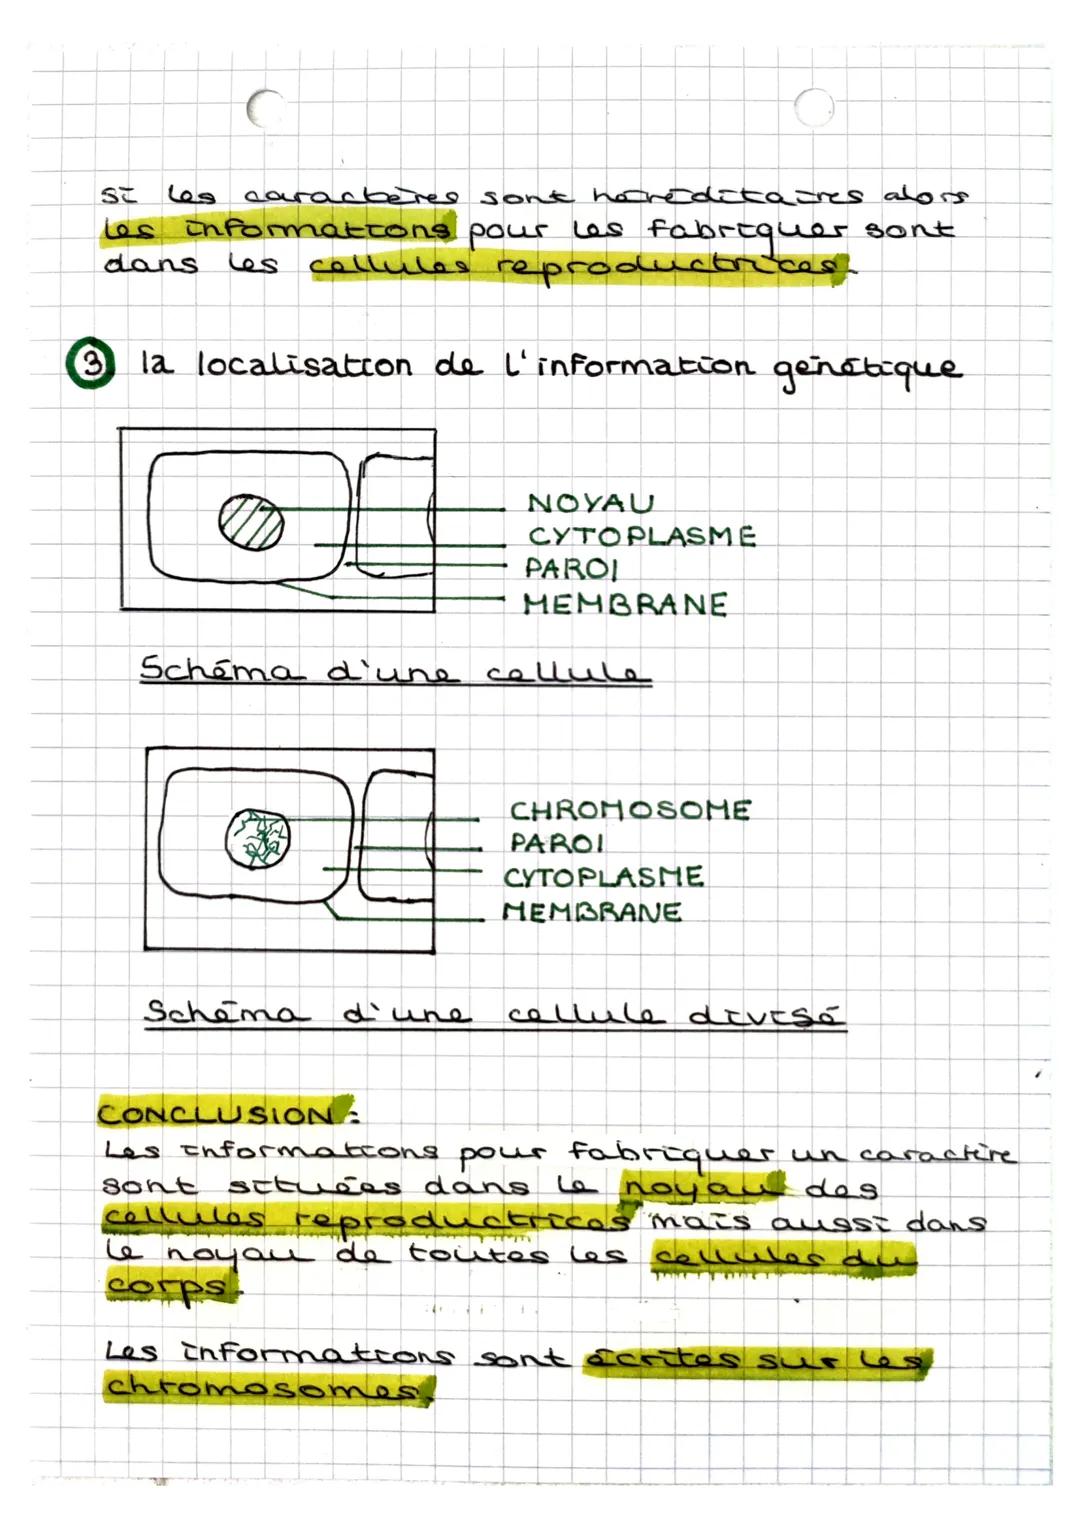 si les caractères sont héréditaires alors
les informations pour les fabriquer sont
dans les cellules reproductrices.
3 la localisation de l'information génétique
NOYAU
CYTOPLASME
PAROI
MEMBRANE
Schéma d'une cellule
CHROMOSOME
PAROI
CYTOPLASME
MEMBRANE
Schéma d'une cellule divisé
CONCLUSION :
Les informations pour fabriquer un caractère
sont situées dans le noyau des
cellules reproductrices mais aussi dans
le noyau de toutes les cellules du
corps.
Les informations sont écrites sur les
chromosomes.